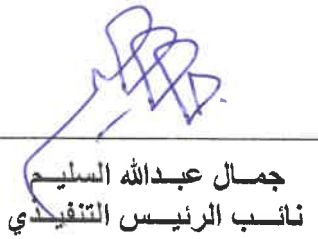 جمال عبدالله السليم
نائب الرئيس التنفيذي